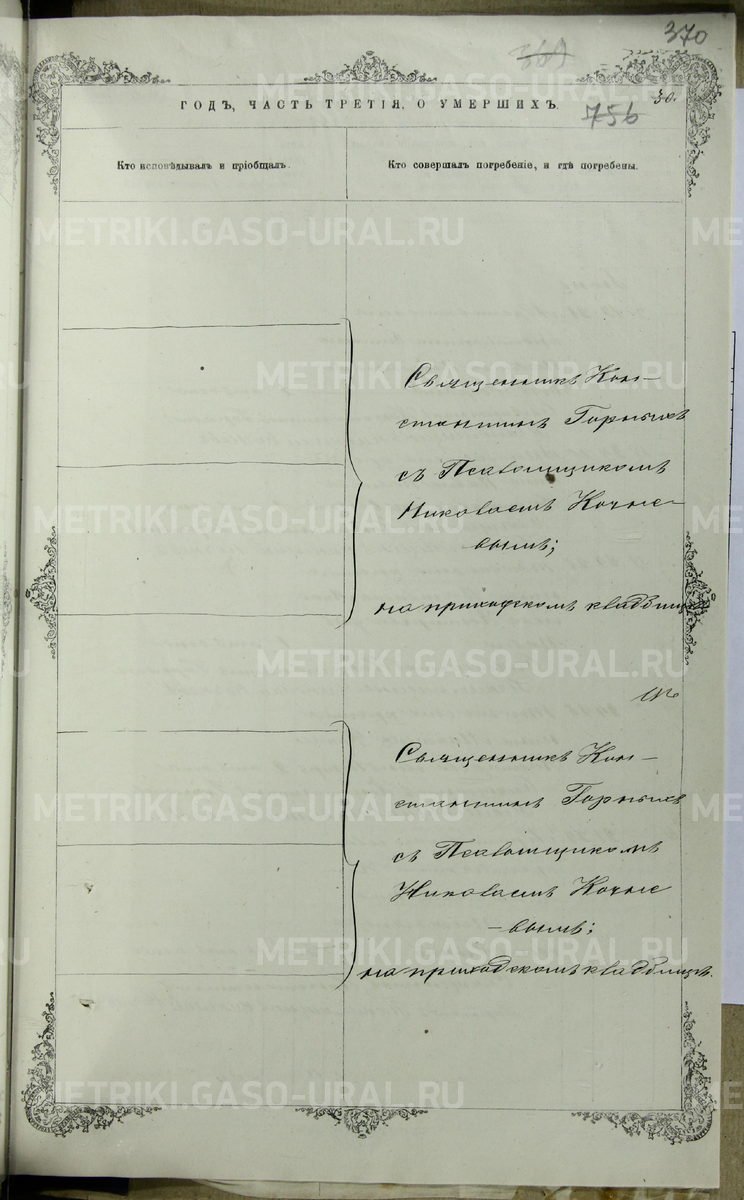 370
369
ГОДЪ, ЧАСТЬ ТРЕТІЯ, О УМЕРШИХЪ.
756
30.
Кто исповѣдывалъ и пріобщалъ.
Кто совершалъ погребеніе, и гдѣ погребены.
Священникъ Кон-
стантинъ Горныхъ
съ Псаломщикомъ
Николаемъ Кочне-
вымъ;
на приходскомъ кладбищѣ
Священникъ Кон-
стантинъ Горныхъ
съ Псаломщикомъ
Николаемъ Кочне
-вымъ;
на приходскомъ кладбищѣ.
METRIKI.GASO-URAL.RU